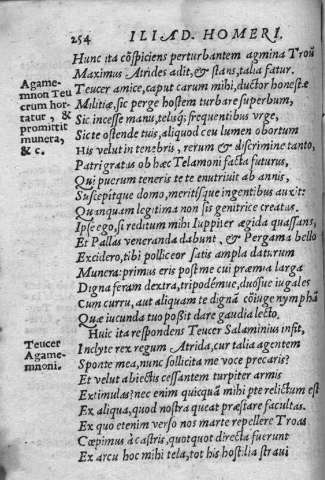 254 ILIAD. HOMERI.
Hunc ita cōspiciens perturbantem agmina Troū
Maximus Atrides adit, & stans, talia fatur.
Agame-
mnon Teu
crum hor-
tatur, &
promittit
munera,
& c.
Teucer amice, caput carum mihi, ductor honestæ
Militiæ, sic perge hostem turbare superbum,
Sic incesse manu, telisq; frequentibus vrge,
Sic te ostende tuis, aliquod ceu lumen obortum
His velut in tenebris, rerum & discrimine tanto,
Patri gratus ob hæc Telamoni facta futurus,
Qui puerum teneris te te enutriuit ab annis,
Suscepitque domo, meritisque ingentibus auxit:
Quanquam legitima non sis genitrice creatus.
Ipse ego, si reditum mihi Iuppiter ægida quassans,
Et Pallas veneranda dabunt, & Pergama bello
Excidero, tibi polliceor satis ampla daturum
Munera: primus eris post me cui præmia larga
Digna feram dextra, tripodémue, duósue iugales
Cum curru, aut aliquam te dignā cōiuge nymphā
Quæ iucunda tuo poßit dare gaudia lecto.
Huic ita respondens Teucer Salaminius insit,
Teucer
Agame-
mnoni.
Inclyte rex regum Atrida, cur talia agentem
Sponte mea, nunc sollicita me voce precaris?
Et velut abiectis cessantem turpiter armis
Extimulas? nec enim quicquā mihi pte relictum est
Ex aliqua, quod nostra queat præstare facultas.
Ex quo etenim verso nos marte repellere Troas
Cœpimus à castris, quotquot directa fuerunt
Ex arcu hoc mihi tela, tot his hostilia straui